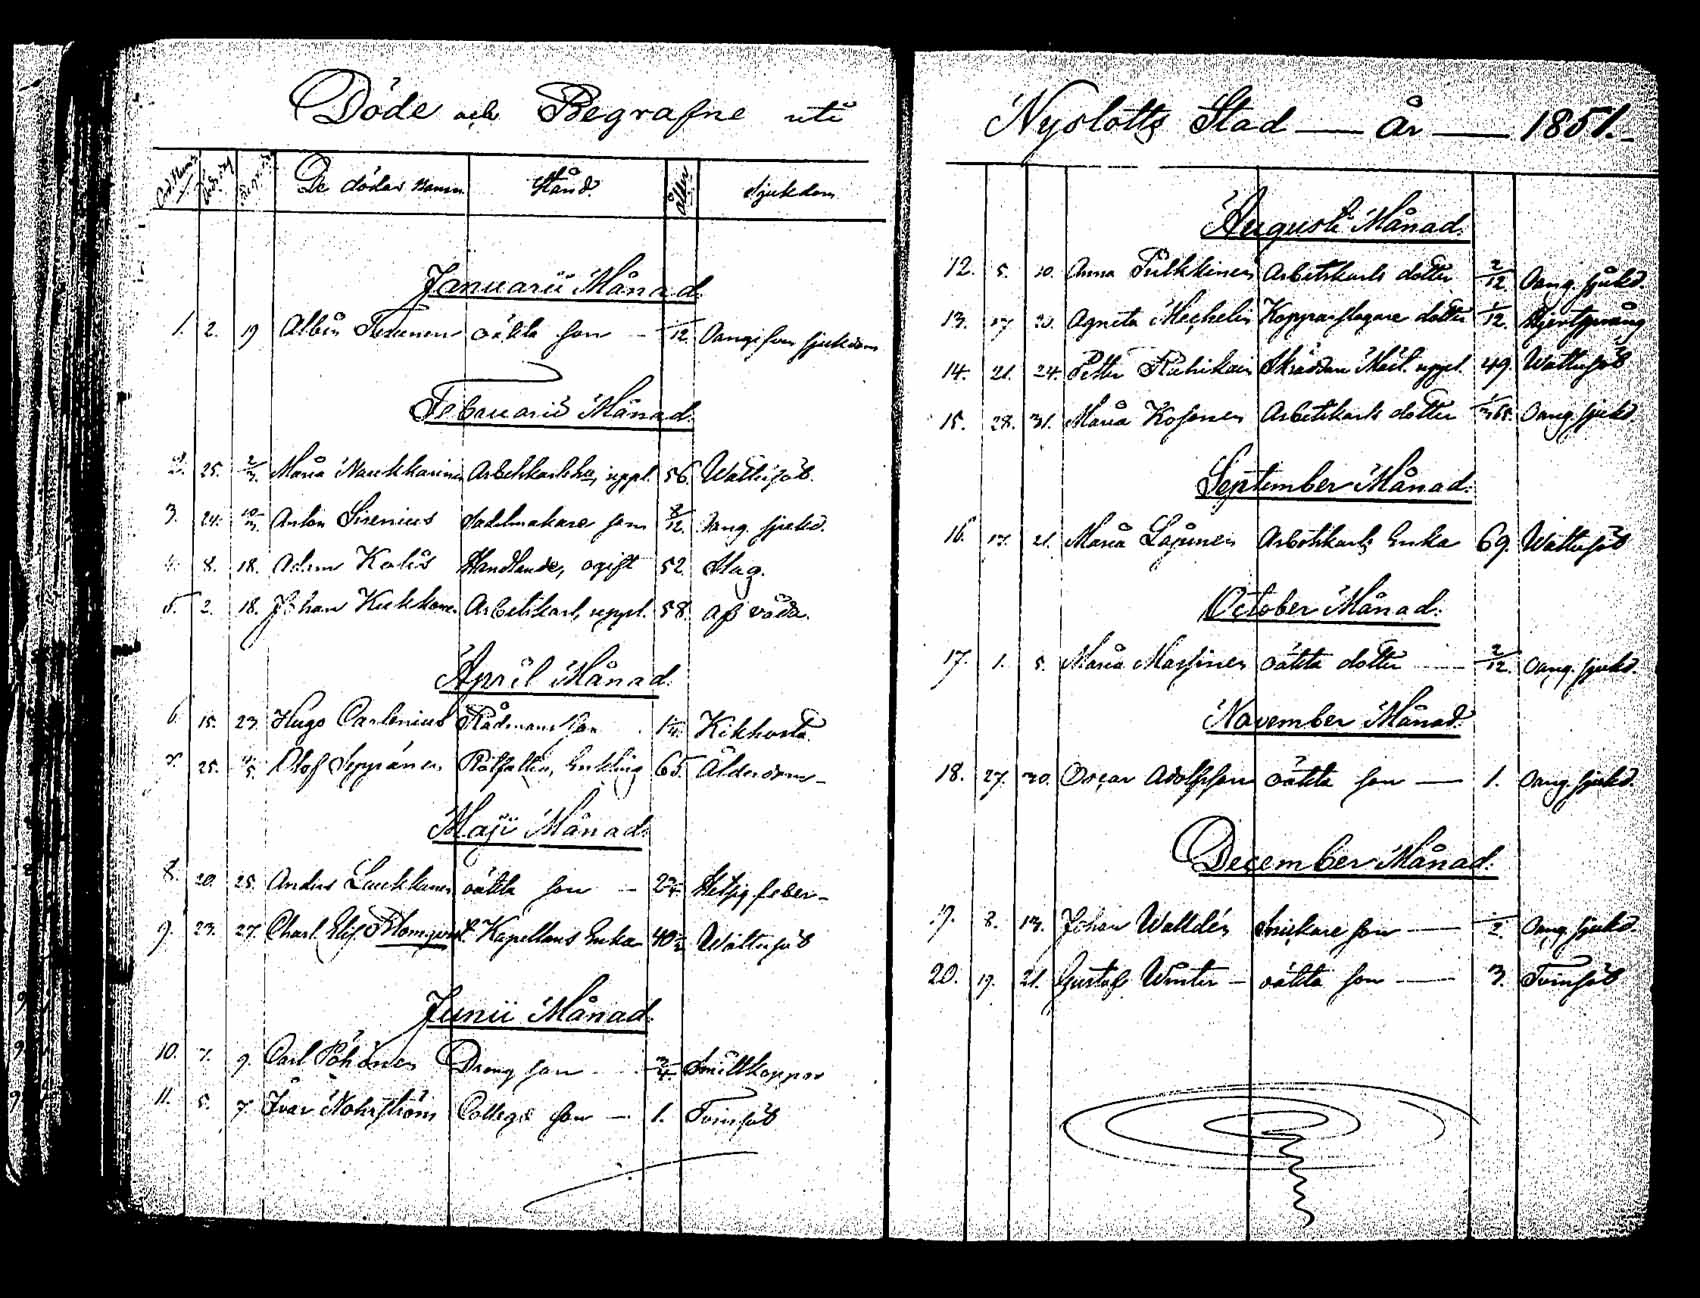 Döde och Begrafne uti
De dödas Namn Stånd. Ålder Sjukdom
Januarii Månad.
1. 2. 19 Albin oäkta son — /12. Oangifven sjukdom
Februarii Månad.
2. 25. 2/3. Maria Naukkarinen Arbetskarls hu, uppt. 56 Wattusot.
3. 24. 10/3. Anton Sirenius Sadelmakare son 8/12 oang. sjukd.
4. 8. 18. Adam Handlande, ogift 52. Slag.
5. 2. 18. Johan Kukkonen Arbetskarl, uppt. 58. af våda.
April Månad.
6. 15. 23. Hugo Carlenius Rådmans son Kikhosta.
7. 25. /5. Olof Seppänen Rotfattig, Enkling 65. Ålderdom—
Maji Månad.
8. 20. 25. Anders Laukkanen oäkta son — Hetsig feber—
9. 23. 27. Charl. Elis. Blomqvist. Kapellans Enka 40 Wattusot
Junii Månad.
10. 7. 9. Carl Pöhönen Dreng son 3/4 Smittkoppor
11. 5. 7. Ivar Nohrström Collega son — 1. Tvinsot
Nyslotts Stad — År — 1851.
Augusti Månad.
12. 5. 10. Anna Pulkkinen Arbetskarls dotter 2/12 oang. sjukd.
13. 17. 20. Agneta Mechelin Kopparslagare dotter 1/12. Hjertsprång
14. 21. 24. Petter Skräddare uppt. 49. Wattusot
15. 28. 31. Maria Kosonen Arbetskarls dotter 1/365. oang. sjukd.
September Månad.
16. 17. 21. Maria Arbetskarls Enka 69. Wattusot
October Månad.
17. 1. 5. Maria Massinen oäkta dotter — 2/12. oang. sjukd.
November Månad.
18. 27. 30. Oscar Adolfsson oäkta son — 1. oang. sjukd.
December Månad.
19. 8. 13. Johan Walldén Snickare son — 1/2. oang. sjukd.
20. 19. 21. Gustaf Winter — oäkta son — 3. Tvinsot